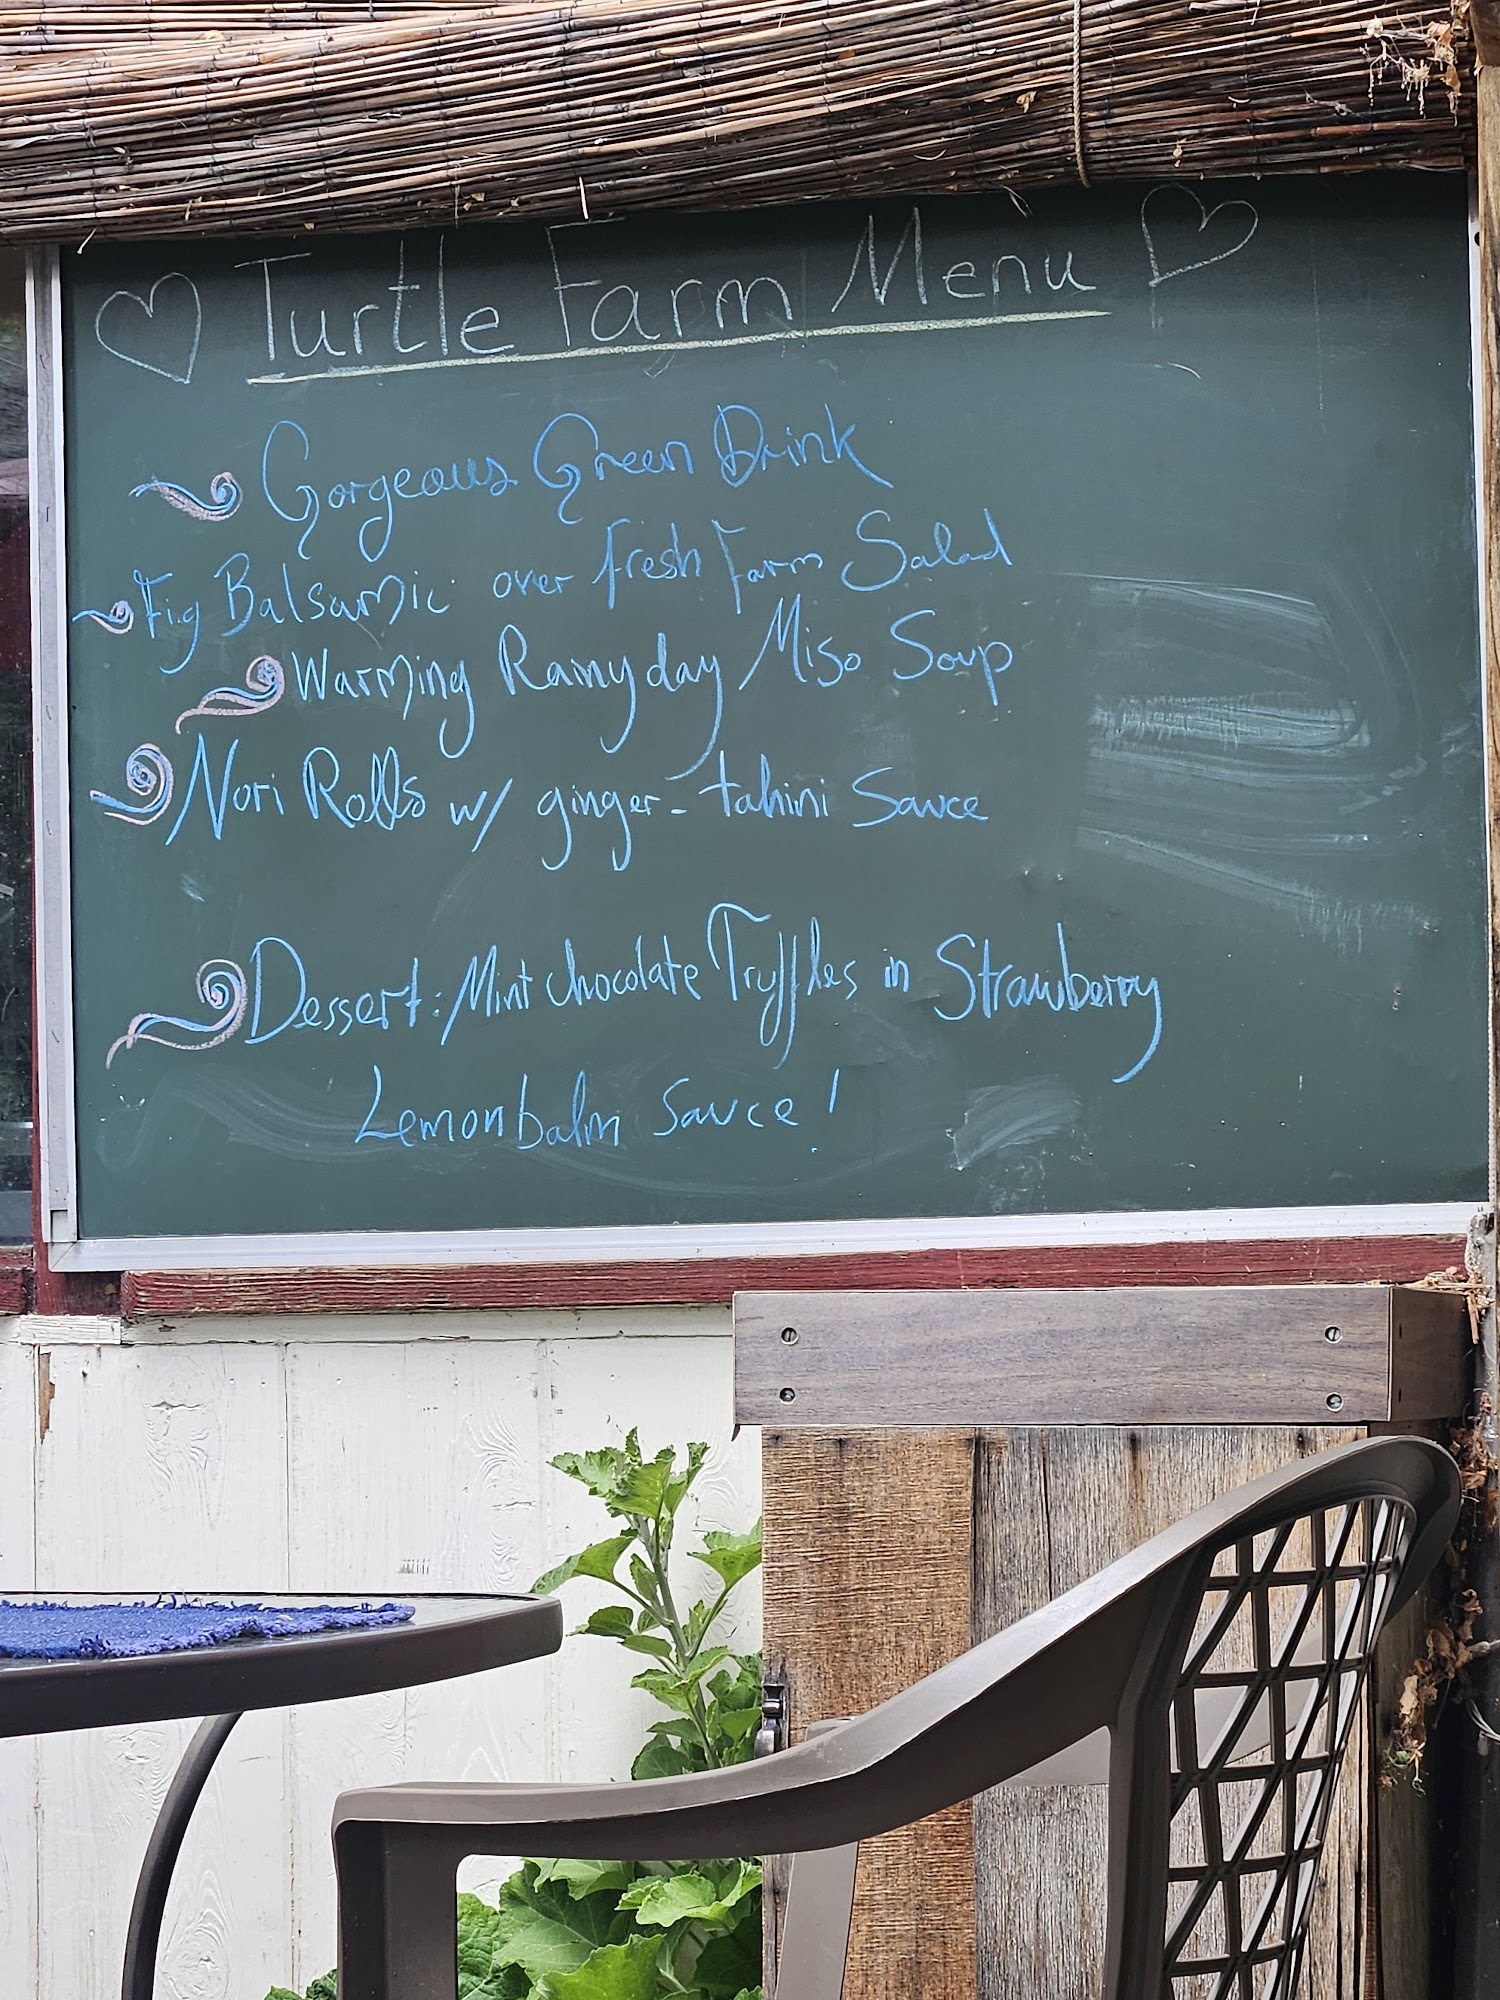 Turtle Farm Menu
Gorgeous Green Drink
Fig Balsamic over fresh Farm Salad
Warming Rainy day Miso Soup
Nori Rolls w/ ginger-tahini Sauce
Dessert: Mint chocolate Truffles in Strawberry
Lemonbalm Sauce!